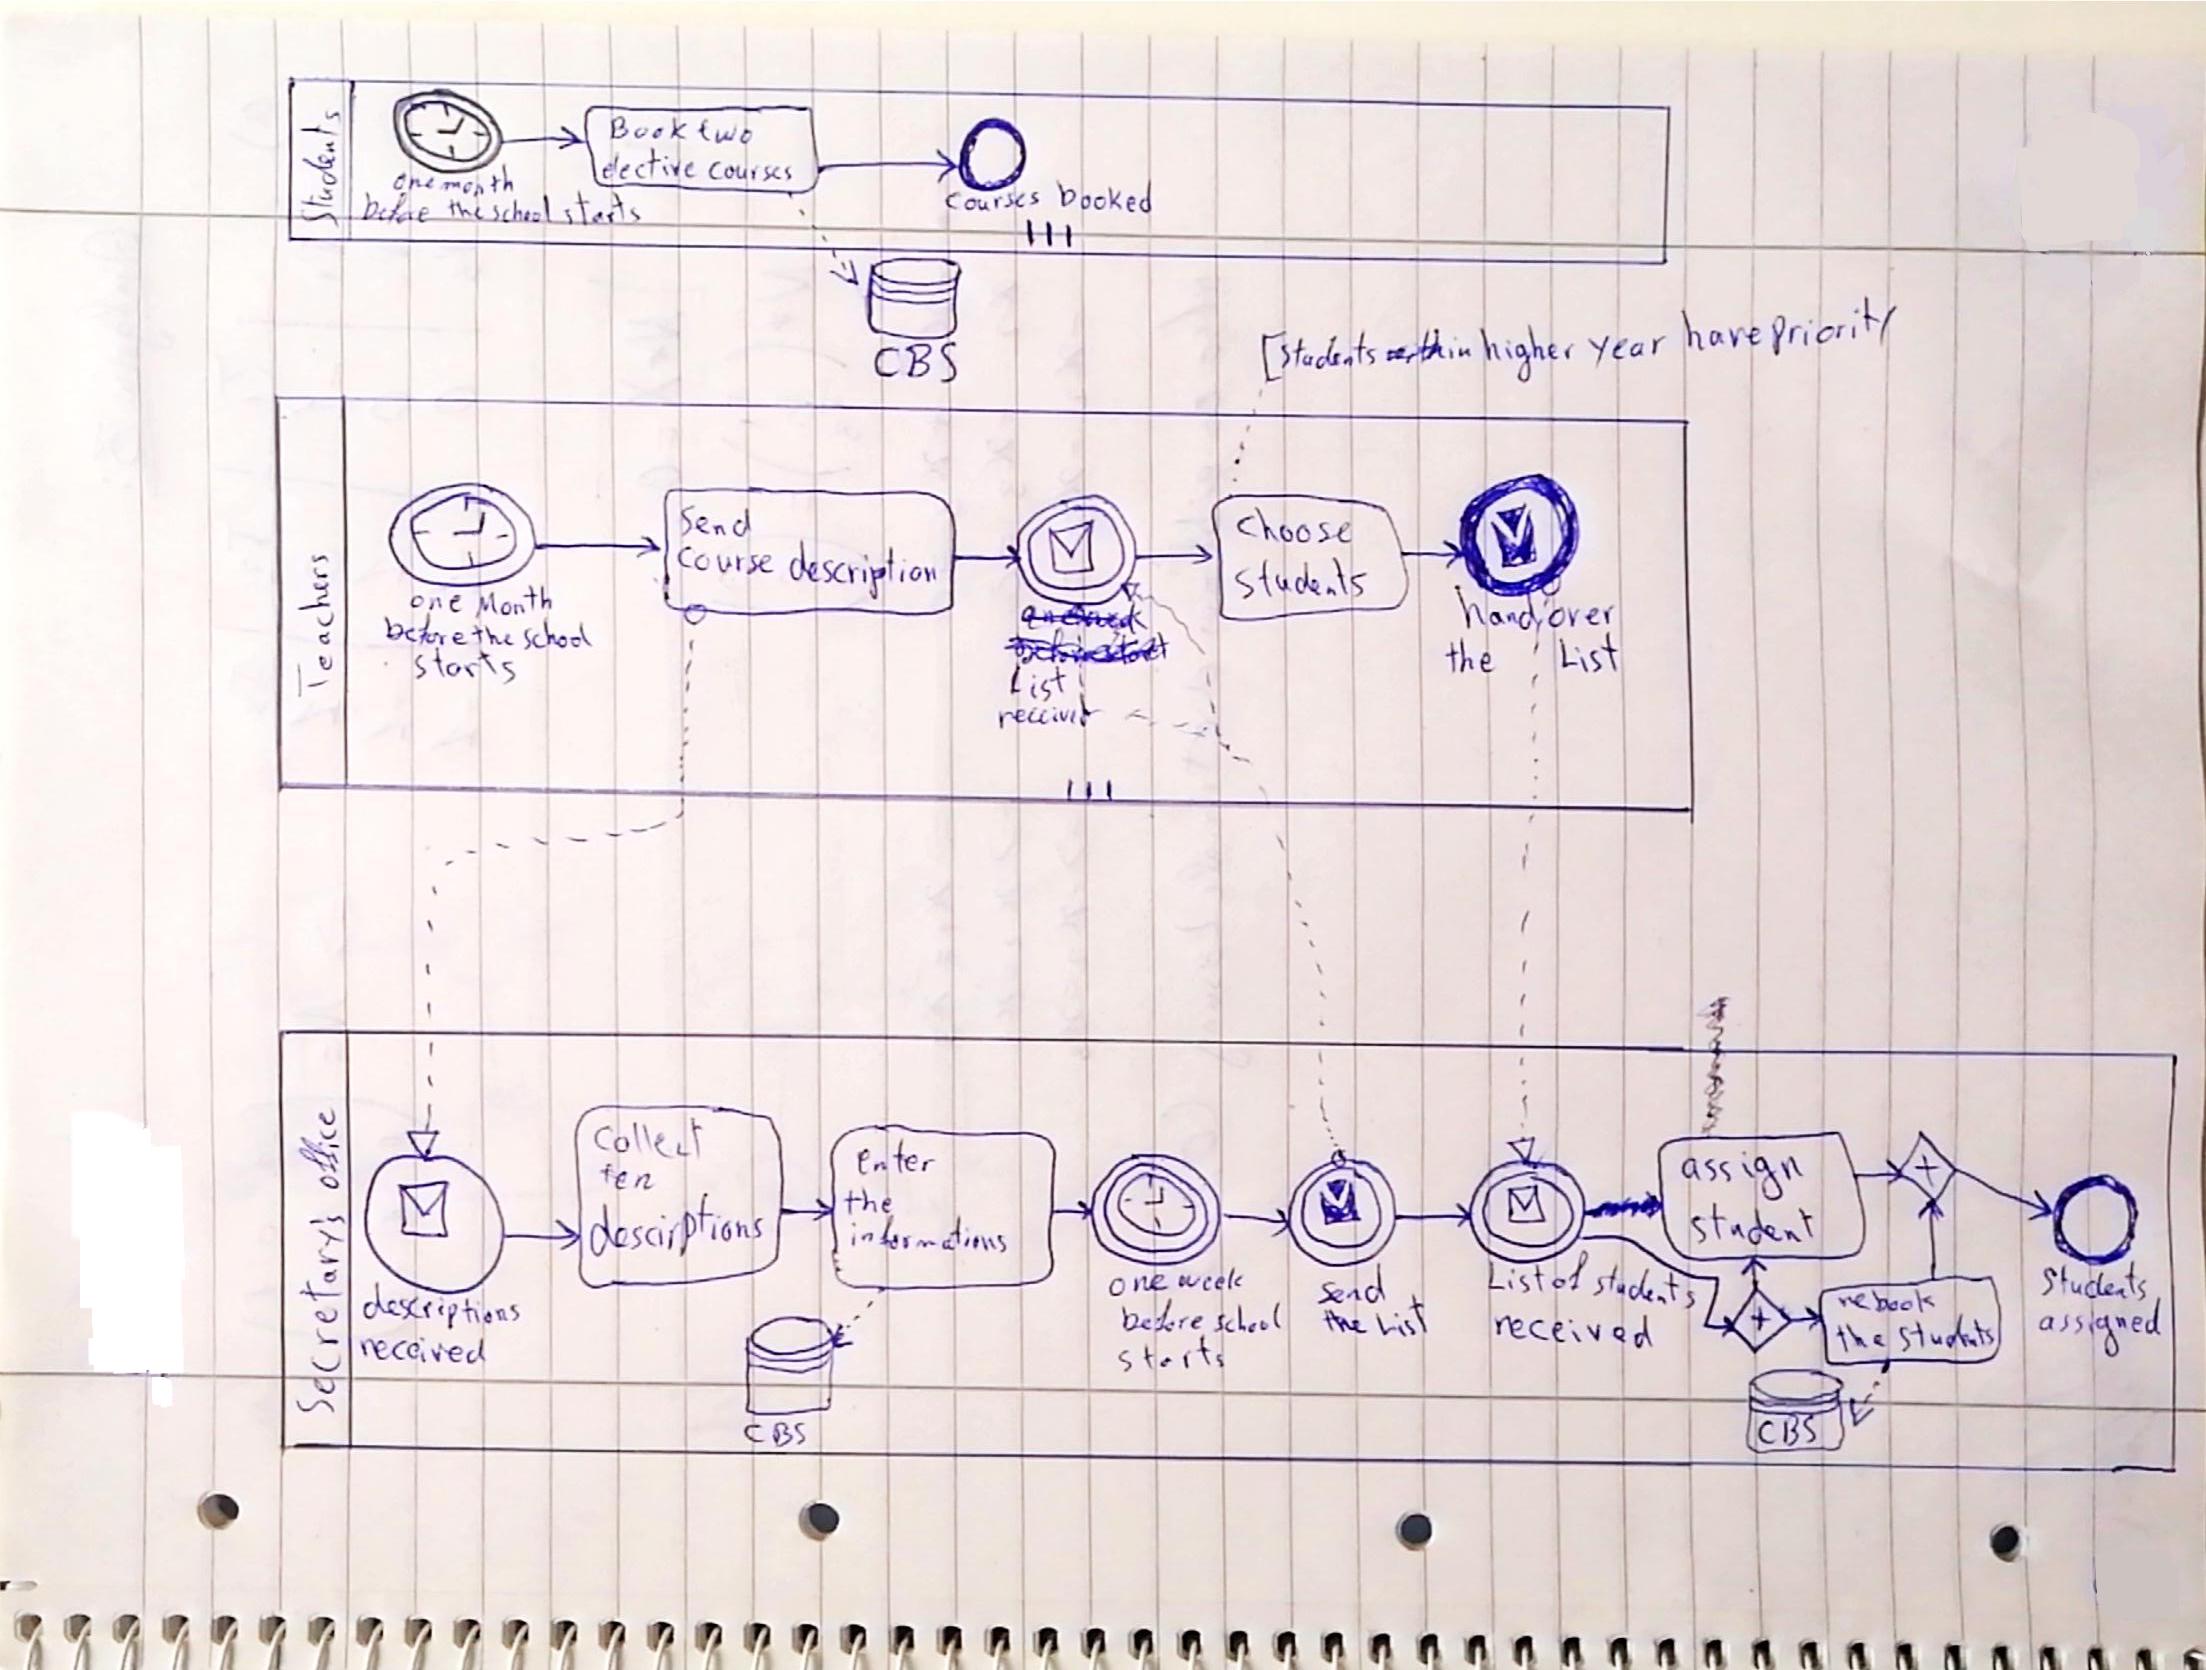 Students
one month
before the school starts
Book two
elective courses
courses booked
CBS
[Students in higher year have priority
Teachers
one Month
before the school
starts
Send
course description
List
receive
choose
students
hand over
the List
Secretary's office
descriptions
received
collect
ten
descriptions
enter
the
informations
one week
before school
starts
Send
the List
List of students
received
assign
student
rebook
the students
Students
assigned
CBS
CBS